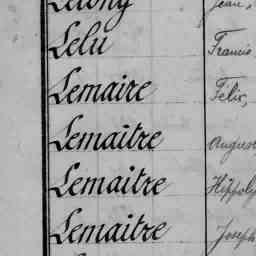 Lelu Francis
Lemaire Félix,
Lemaitre August
Lemaitre Hippoly
Lemaitre Joseph